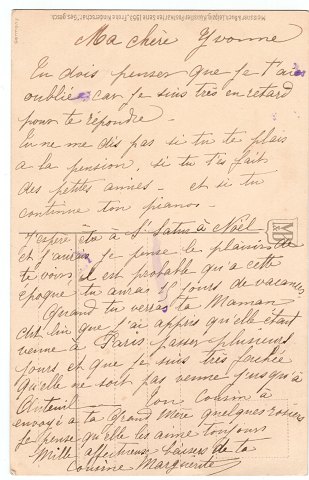 Meissner & Buch, Leipzig, Künstler-Postkarten Serie 1957 „Frohe Kinderschar“ Ges. gesch.
Germany
Ma chère Yvonne
Tu dois penser que je t'ai
oubliée car je suis très en retard
pour te répondre.
Tu ne me dis pas si tu te plais
a la pension, si tu t'es fait
des petites amies - et si tu
continue ton piano -
J'espère être à St Latus à Noël
et j'aurais je pense le plaisir de
te voir, il est probable qu'a cette
époque tu auras 15 jours de vacances
Quand tu verras ta Maman
dis lui que j'ai appris qu'elle était
venue à Paris passer plusieurs
jours et que je suis très fachée
qu'elle ne soit pas venue jusqu'à
Auteuil - Ton Cousin a
envoyé à ta Grand Mère quelques rosiers
je pense qu'elle les aime toujours
Mille affectueux baisers de ta
Cousine Marguerite